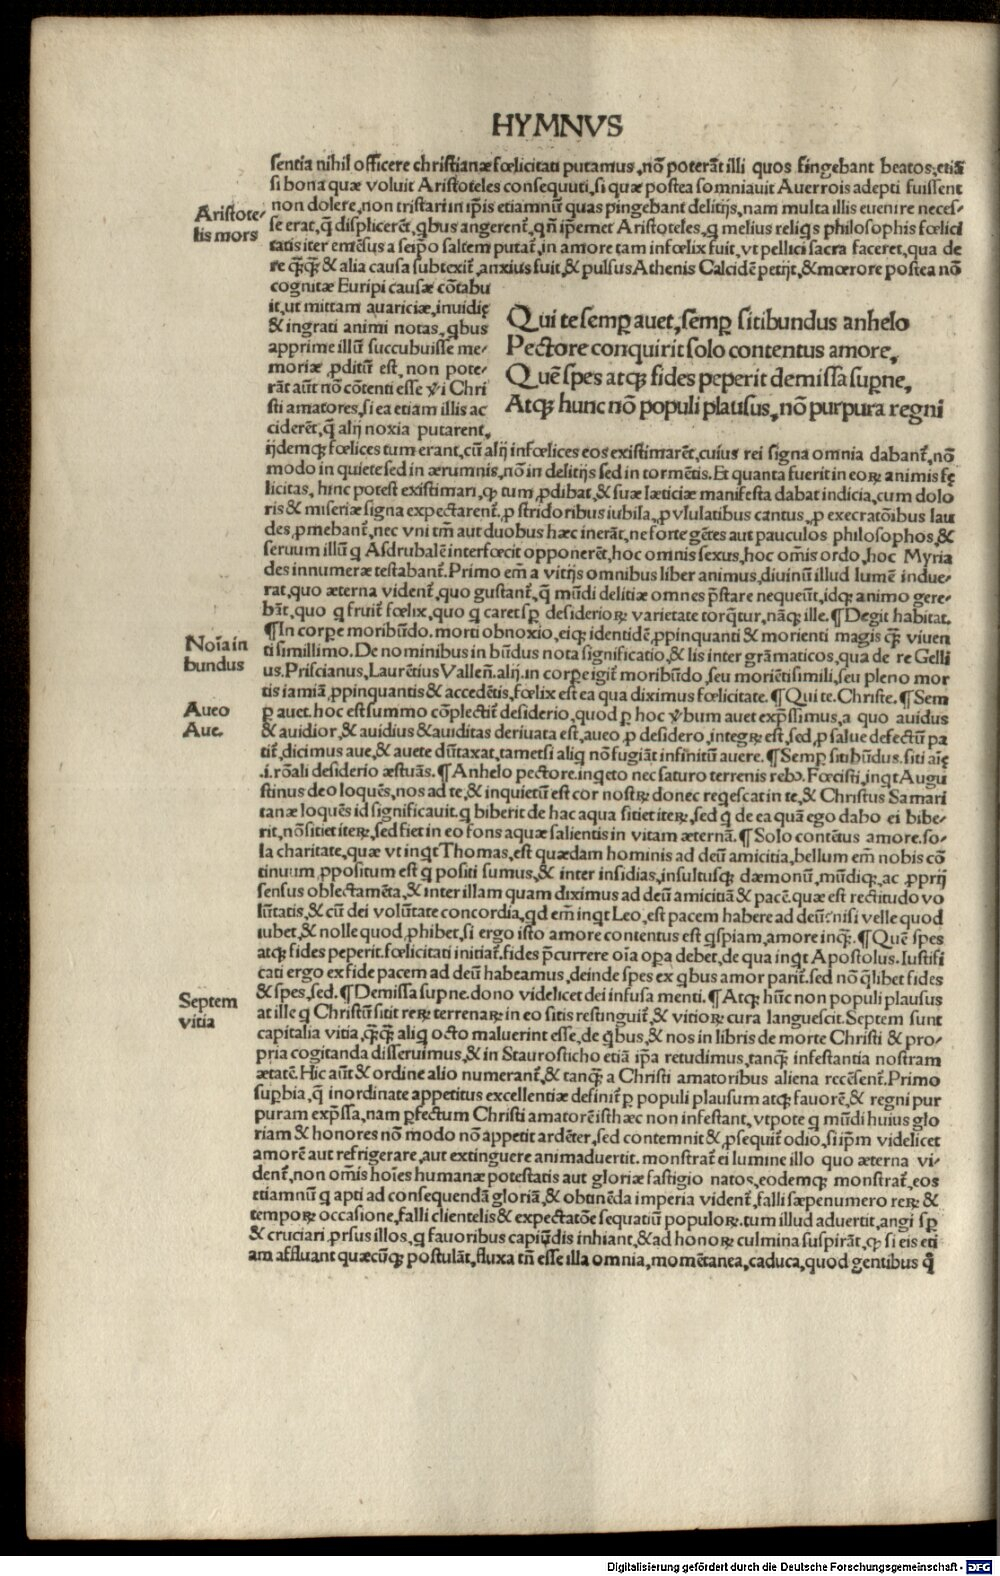 HYMNVS
sentia nihil officere christianæ fœlicitati putamus, nō poterāt illi quos fingebant beatos, etiā
si bona quæ voluit Aristoteles consequuti, si quæ postea somniauit Auerrois adepti fuissent
non dolere, non tristari in ip̄is etiamnū quas pingebant delitijs, nam multa illis euenire neces-
Aristote-
lis mors
se erat, q̄ displicerēt, qbus angerent̄, qn̄ ip̄emet Aristoteles, q melius reliqs philosophis fœlici
tatis iter emēsus a seip̄o saltem putat̄, in amore tam infœlix fuit, vt pellici sacra faceret, qua de
re q̄q̄ & alia causa subtexit̄, anxius fuit, & pulsus Athenis Calcidē petijt, & mœrore postea nō
cognitæ Euripi causæ cōtabu
it, ut mittam auariciæ, inuidię
& ingrati animi notas, qbus
apprime illū succubuisse me-
moriæ ꝓditū est, non pote-
rāt aūt nō cōtenti esse v̄i Chri
sti amatores, si ea etiam illis ac
ciderēt, q̄ alij noxia putarent,
Qui te semꝑ auet, semꝑ sitibundus anhelo
Pectore conquirit solo contentus amore,
Quē spes atqꝫ fides peperit demissa suꝑne,
Atqꝫ hunc nō populi plausus, nō purpura regni
ijdemqꝫ fœlices tum erant, cū alij infœlices eos existimarēt, cuius rei signa omnia dabant̄, nō
modo in quiete sed in ærumnis, nō in delitijs sed in tormētis. Et quanta fuerit in eoꝝ animis fę
licitas, hinc potest existimari, ꝙ tum ꝓdibat, & suæ læticiæ manifesta dabat indicia, cum dolo
ris & miseriæ signa expectarent̄, ꝓ stridoribus iubila, ꝓ vlulatibus cantus, ꝓ execratōibus lau
des ꝓmebant̄, nec vni tm̄ aut duobus hæc inerāt, ne forte gētes aut pauculos philosophos, &
seruum illū q Asdrubalē interfœcit opponerēt, hoc omnis sexus, hoc om̄is ordo, hoc Myria
des innumeræ testabant̄. Primo em̄ a vitijs omnibus liber animus, diuinū illud lumē indue-
rat, quo æterna vident̄, quo gustant̄, q̄ mūdi delitiæ omnes p̄stare nequeūt, idqꝫ animo gere-
bāt, quo q fruit̄ fœlix, quo q caret sꝑ desiderioꝝ varietate torq̄tur, nāqꝫ ille. ¶ Degit habitat.
Noīa in
bundus
¶ In corꝑe moribūdo. morti obnoxio, eiqꝫ identidē ꝓpinquanti & morienti magis q̄ꝫ viuen
ti simillimo. De nominibus in būdus nota significatio, & lis inter grāmaticos, qua de re Gelli
us, Priscianus, Laurētius Vallen̄. alij. in corꝑe igit̄ moribūdo, seu moriēti simili, seu pleno mor
tis iamiā ꝓpinquantis & accedētis, fœlix est ea qua diximus fœlicitate. ¶ Qui te. Christe. ¶ Sem
Aueo
Aue.
ꝑ auet. hoc est summo cōplectit̄ desiderio, quod ꝑ hoc v̄bum auet exp̄ssimus, a quo auidus
& auidior, & auidius & auiditas deriuata est, aueo ꝓ desidero, integꝝ est, sed ꝓ salue defectū pa
tit̄, dicimus aue, & auete dūtaxat, tametsi aliq nō fugiāt infinitū auere. ¶ Semꝑ sitibūdus. siti aīę
.i. rōali desiderio æstuās. ¶ Anhelo pectore. inqeto nec saturo terrenis rebꝰ. Fœcisti, inqt Augu
stinus deo loquēs, nos ad te, & inquietū est cor nostꝝ donec reqescat in te, & Christus Samari
tanæ loquēs id significauit, q biberit de hac aqua sitiet iteꝝ, sed q de ea quā ego dabo ei bibe-
rit, nō sitiet iteꝝ, sed fiet in eo fons aquæ salientis in vitam æternā. ¶ Solo contētus amore. so-
la charitate, quæ vt inqt Thomas, est quædam hominis ad deū amicitia, bellum em̄ nobis cō
tinuum ꝓpositum est q positi sumus, & inter insidias, insultusqꝫ dæmonū, mūdiqꝫ, ac ꝓprij
sensus oblectamēta, & inter illam quam diximus ad deū amicitiā & pacē. quæ est rectitudo vo
lūtatis, & cū dei volūtate concordia, qd em̄ inqt Leo, est pacem habere ad deū: nisi velle quod
iubet, & nolle quod ꝓhibet, si ergo isto amore contentus est qspiam, amore inq̄ꝫ. ¶ Quē spes
atqꝫ fides peperit. fœlicitati initiat̄. fides p̄currere oīa oꝑa debet, de qua inqt Apostolus. Iustifi
cati ergo ex fide pacem ad deū habeamus, deinde spes ex qbus amor parit̄. sed nō q̄libet fides
& spes, sed. ¶ Demissa suꝑne. dono videlicet dei infusa menti. ¶ Atqꝫ hūc non populi plausus
Septem
vitia
at ille q Christū sitit reꝝ terrenaꝝ in eo sitis restinguit̄, & vitioꝝ cura languescit. Septem sunt
capitalia vitia, q̄ꝫq̄ꝫ aliq octo maluerint esse, de q̄bus, & nos in libris de morte Christi & pro-
pria cogitanda disseruimus, & in Staurosticho etiā ip̄a retudimus, tanq̄ꝫ infestantia nostram
ætatē. Hic aūt & ordine alio numerant̄, & tanq̄ꝫ a Christi amatoribus aliena recēsent̄. Primo
suꝑbia, q̄ inordinate appetitus excellentiæ definit̄ ꝑ populi plausum atqꝫ fauorē, & regni pur
puram exp̄ssa, nam ꝑfectum Christi amatorē isthæc non infestant, vtpote q mūdi huius glo
riam & honores nō modo nō appetit ardēter, sed contemnit & ꝓsequit̄ odio, si ip̄m videlicet
amorē aut refrigerare, aut extinguere animaduertit. monstrat̄ ei lumine illo quo æterna vi-
dent̄, non om̄is hoīes humanæ potestatis aut gloriæ fastigio natos, eodemqꝫ monstrat̄, eos
etiamnū q apti ad consequendā gloriā, & obtinēda imperia vident̄, falli sæpenumero reꝝ &
tempoꝝ occasione, falli clientelis & expectatōe sequatiū populoꝝ. tum illud aduertit, angi sꝑ
& cruciari ꝓrsus illos, q fauoribus capiūdis inhiant, & ad honoꝝ culmina suspirāt, ꝙ si eis eti
am affluant quæcūqꝫ postulāt, fluxa tn̄ esse illa omnia, momētanea, caduca, quod gentibus q̄
Digitalisierung gefördert durch die Deutsche Forschungsgemeinschaft - DFG